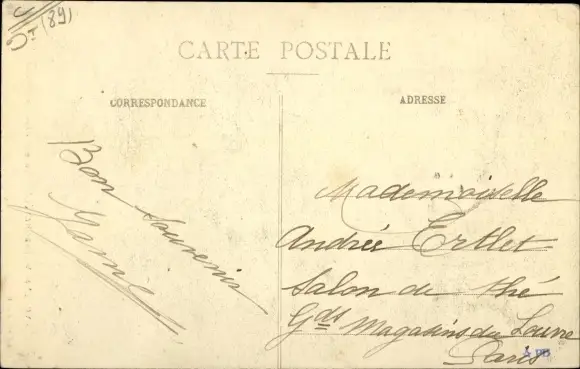 (89)
CARTE POSTALE
CORRESPONDANCE
Bon Souvenir
ADRESSE
Mademoiselle
Andrée Ertlet
Salon de thé
Gds Magasins du Louvre
Paris